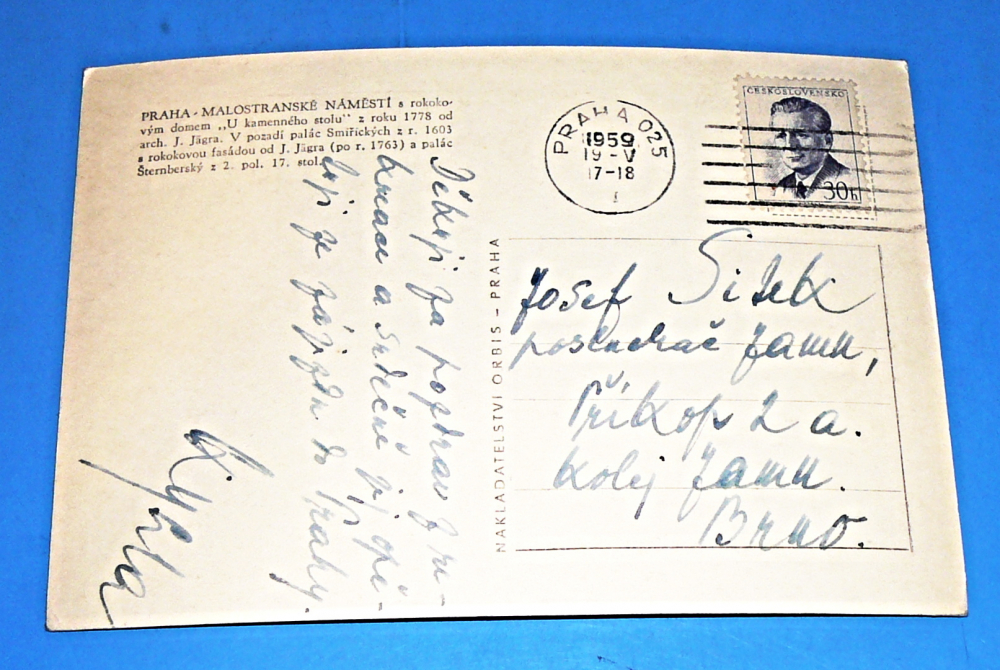 PRAHA - MALOSTRANSKÉ NÁMĚSTÍ s rokoko-
vým domem „U kamenného stolu" z roku 1778 od
arch. J. Jägra. V pozadí palác Smiřických z r. 1603
s rokokovou fasádou od J. Jägra (po r. 1763) a palác
Šternberský z 2. pol. 17. stol.
PRAHA 025
1959
19 -V
17-18
ČESKOSLOVENSKO
30h
NAKLADATELSTVÍ ORBIS - PRAHA
Děkuji za pozdrav z
a srdečně
je zájezdu do Prahy.
Josef
posluchač Jamu,
Příkop 2 a.
Kolej Jamu.
Brno.